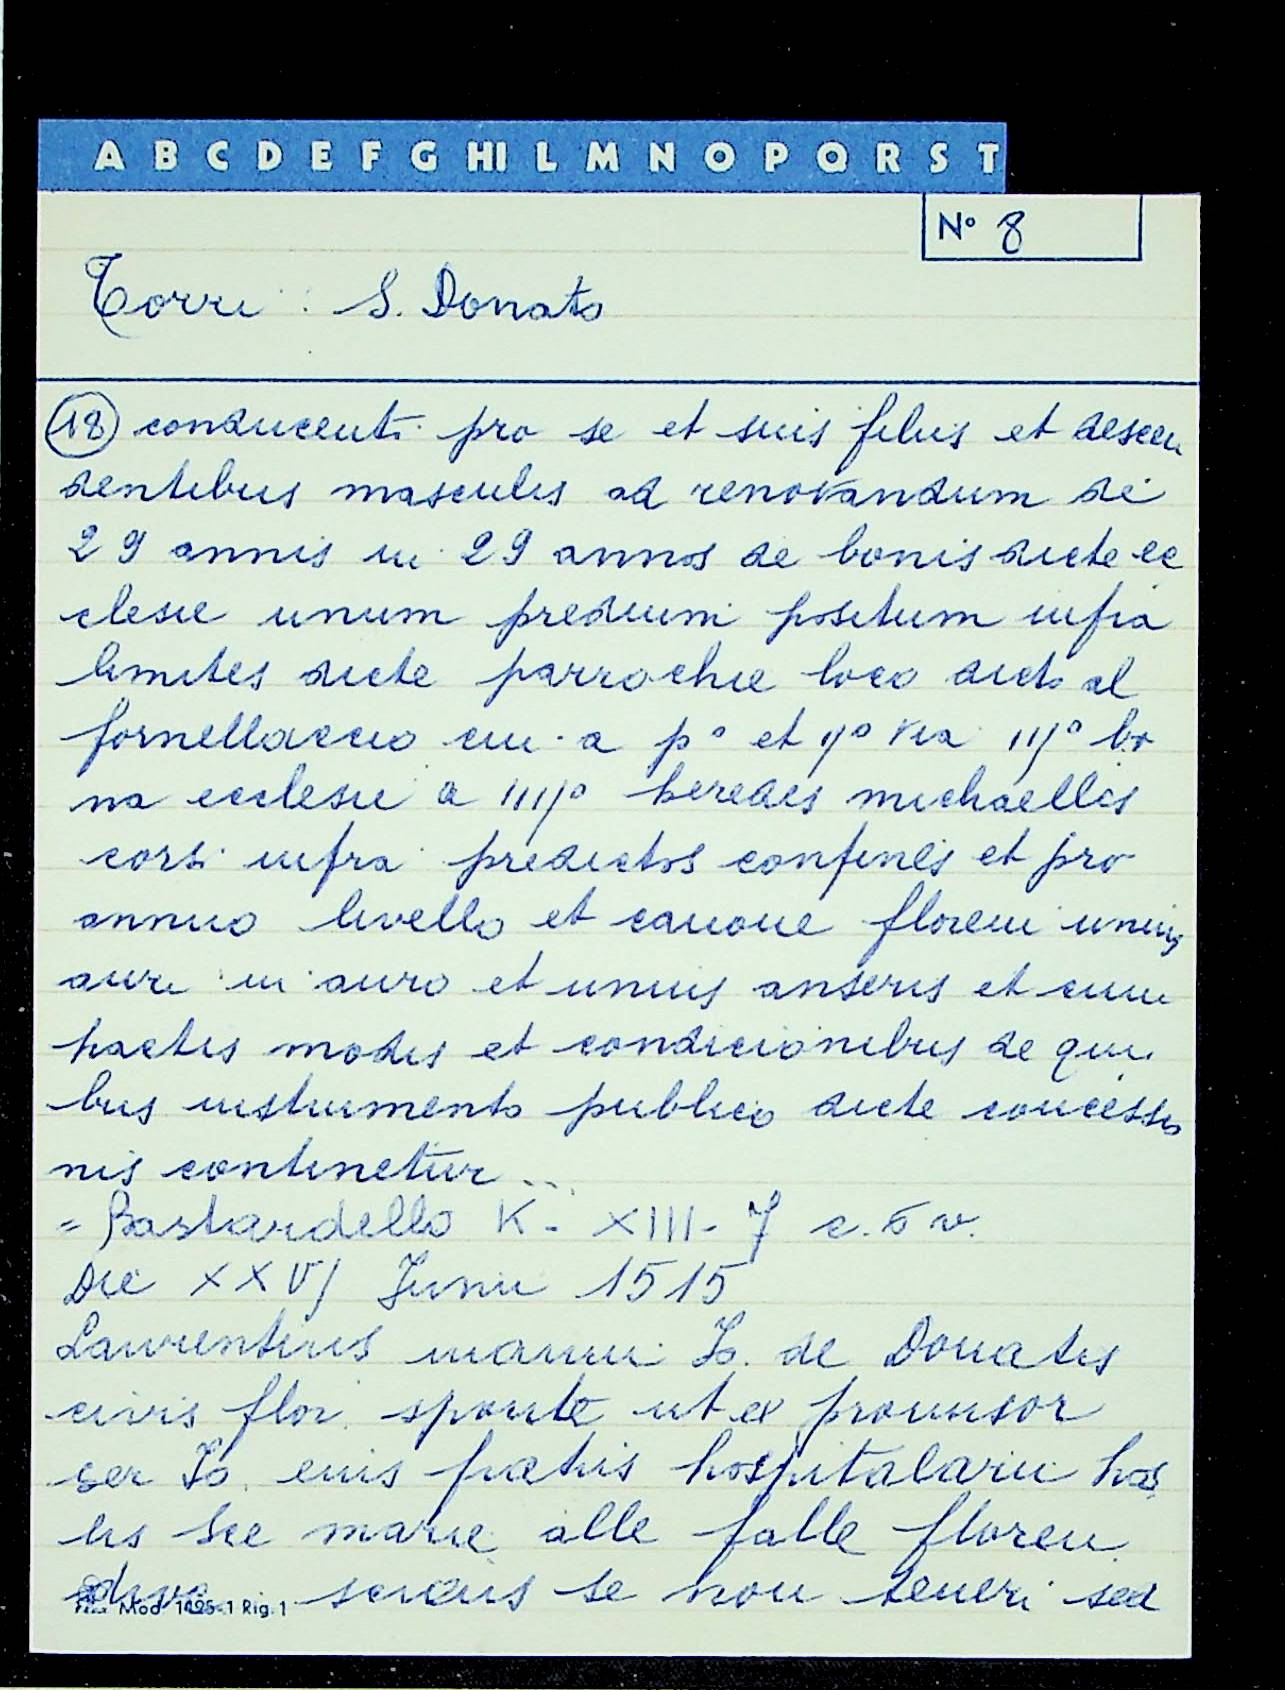 A B C D E F G HI L M N O P Q R S T
N° 8
Torri : S. Donato
18 conducenti pro se et suis filiis et descen
dentibus masculis ad renovandum de
29 annis in 29 annos de bonis dicte ec
clesie unum predium positum infra
limites dicte parrochie loco dicto al
fornellaccio cui a p° et ij° via iij° bo
na ecclesie a iiij° heredes michaellis
corsi infra predictos confines et pro
annuo livello et canone floreni unius
auri in auro et unius anseris et cum
pactis modis et condicionibus de qui
bus instrumento publico dicte concessio
nis continetur...
= Bastardello K - XIII - 7 c. 5 v.
Die XXVJ Junii 1515
Laurentius manni Jo. de Donatis
civis flor. sponte ut ex promissor
ser Jo. eius fratris hospitalarii hos
lis Sce marie alle falle floren.
sciens se non teneri sed
Mod. 1495-1 Rig. 1